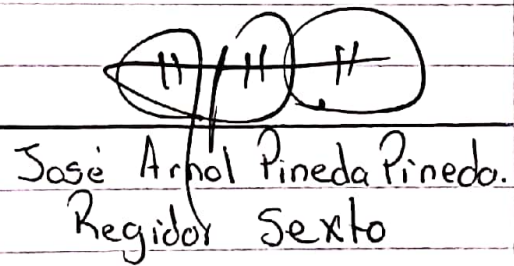 José Arnol Pineda Pineda.
Regidor Sexto